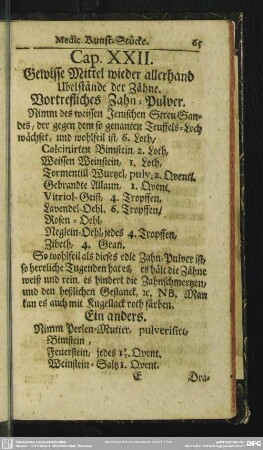 Medic. Kunst-Stücke. 65
Cap. XXII.
Gewisse Mittel wieder allerhand
Ubelstände der Zähne.
Vortrefliches Zahn-Pulver.
Nimm des weissen Jenischen Streu San-
des, der gegen dem so genanten Teuffels-Loch
wächset, und wohlfeil ist, 6. Loth,
Calcinirten Bimstein, 2. Loth,
Weissen Weinstein, 1. Loth,
Tormentill-Wurzel, pulv. 2. Qventl.
Gebrandte Allaun, 1. Qvent,
Vitriol-Geist, 4. Tropffen,
Lavendel-Oehl, 6. Tropffen,
Rosen-Oehl,
Neglein-Oehl, jedes 4. Tropffen,
Zibeth, 4. Gran.
So wohlfeil als dieses edle Zahn-Pulver ist,
so herrliche Tugenden hat es, es hält die Zähne
weiß und rein, es hindert die Zahnschmertzen,
und den heßlichen Gestanck, ꝛc. NB. Man
kan es auch mit Kugellack roth färben.
Ein anders.
Nimm Perlen-Mutter, pulverisirt,
Bimstein,
Feuerstein, jedes 1½. Qvent.
Weinstein-Saltz 1. Qvent.
E Dra-